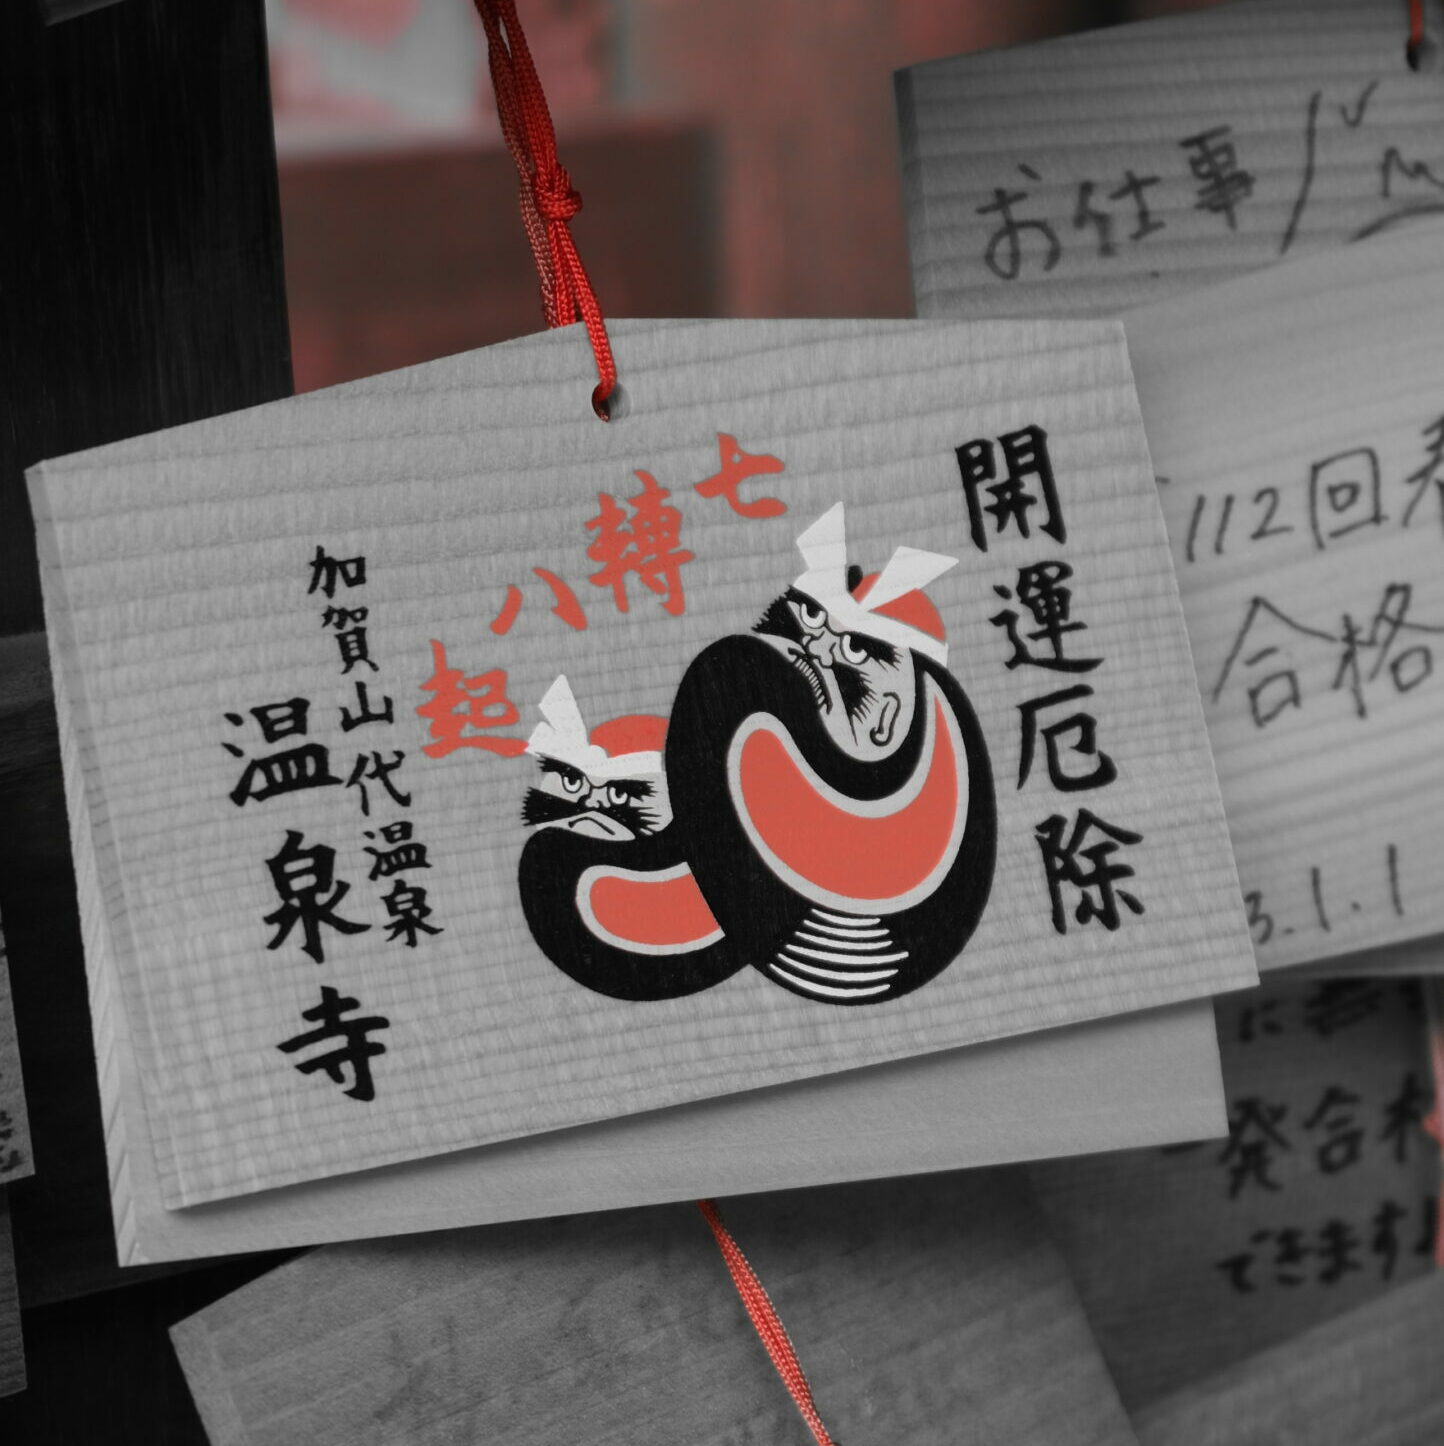 開運厄除
七轉八起
加賀山代温泉
温泉寺
お仕事
112回
合格
3.1.1
発合格
できます